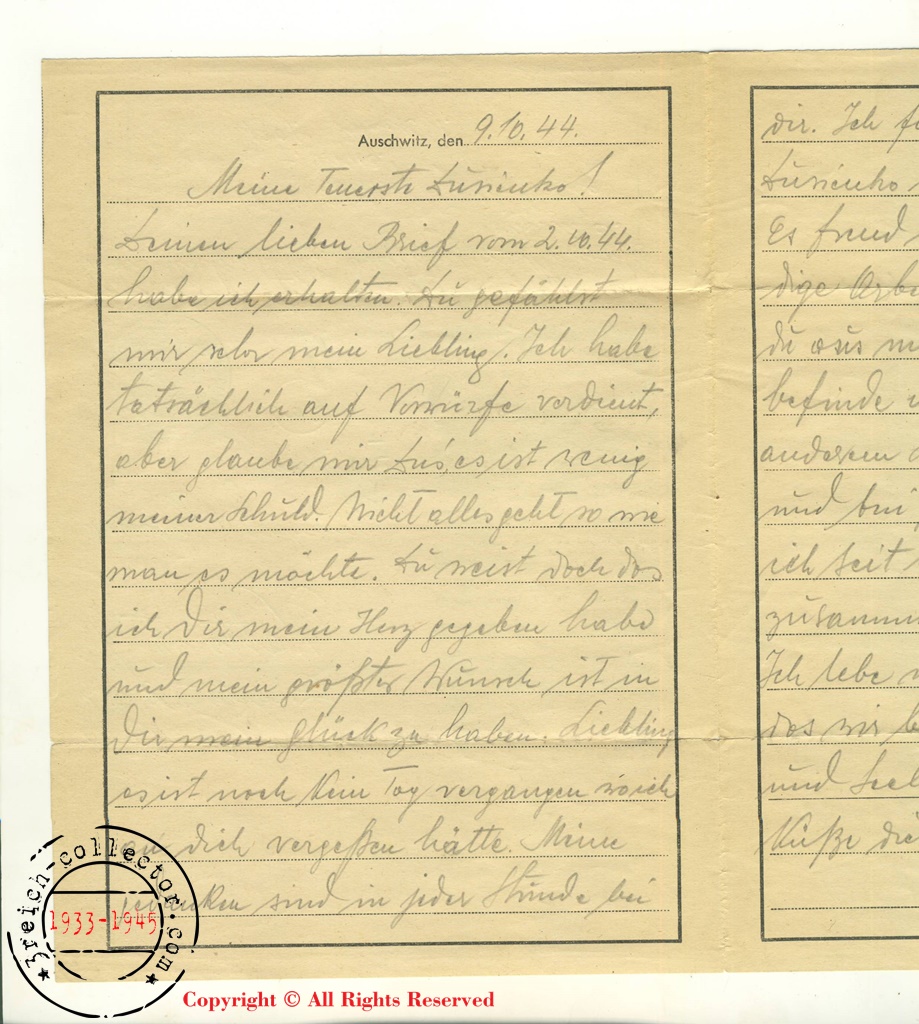 Auschwitz, den 9.10.44.
Meine Teuerste Lusienko!
Deinen lieben Brief vom 2.10.44.
habe ich erhalten. Du gefählst
mir sehr mein Liebling. Ich habe
tatsächlich auf Vorwürfe verdient,
aber glaube mir Lus es ist wenig
meiner Schuld. Nicht alles geht so wie
man es möchte. Du weist doch das
ich Dir mein Herz gegeben habe
und mein größter Wunsch ist in
Dir mein Glück zu haben. Liebling
es ist noch kein Tag vergangen wo ich
an dich vergeßen hätte. Meine
Gedanken sind in jeder Stunde bei
dir. Ich
Lusienko
Es freud
dige
du aus
befinde
anderem
und bei
ich seit
zusamm
Ich lebe
das wir
und Seel
Küße die
3reich-collector.com
1933-1945
Copyright © All Rights Reserved